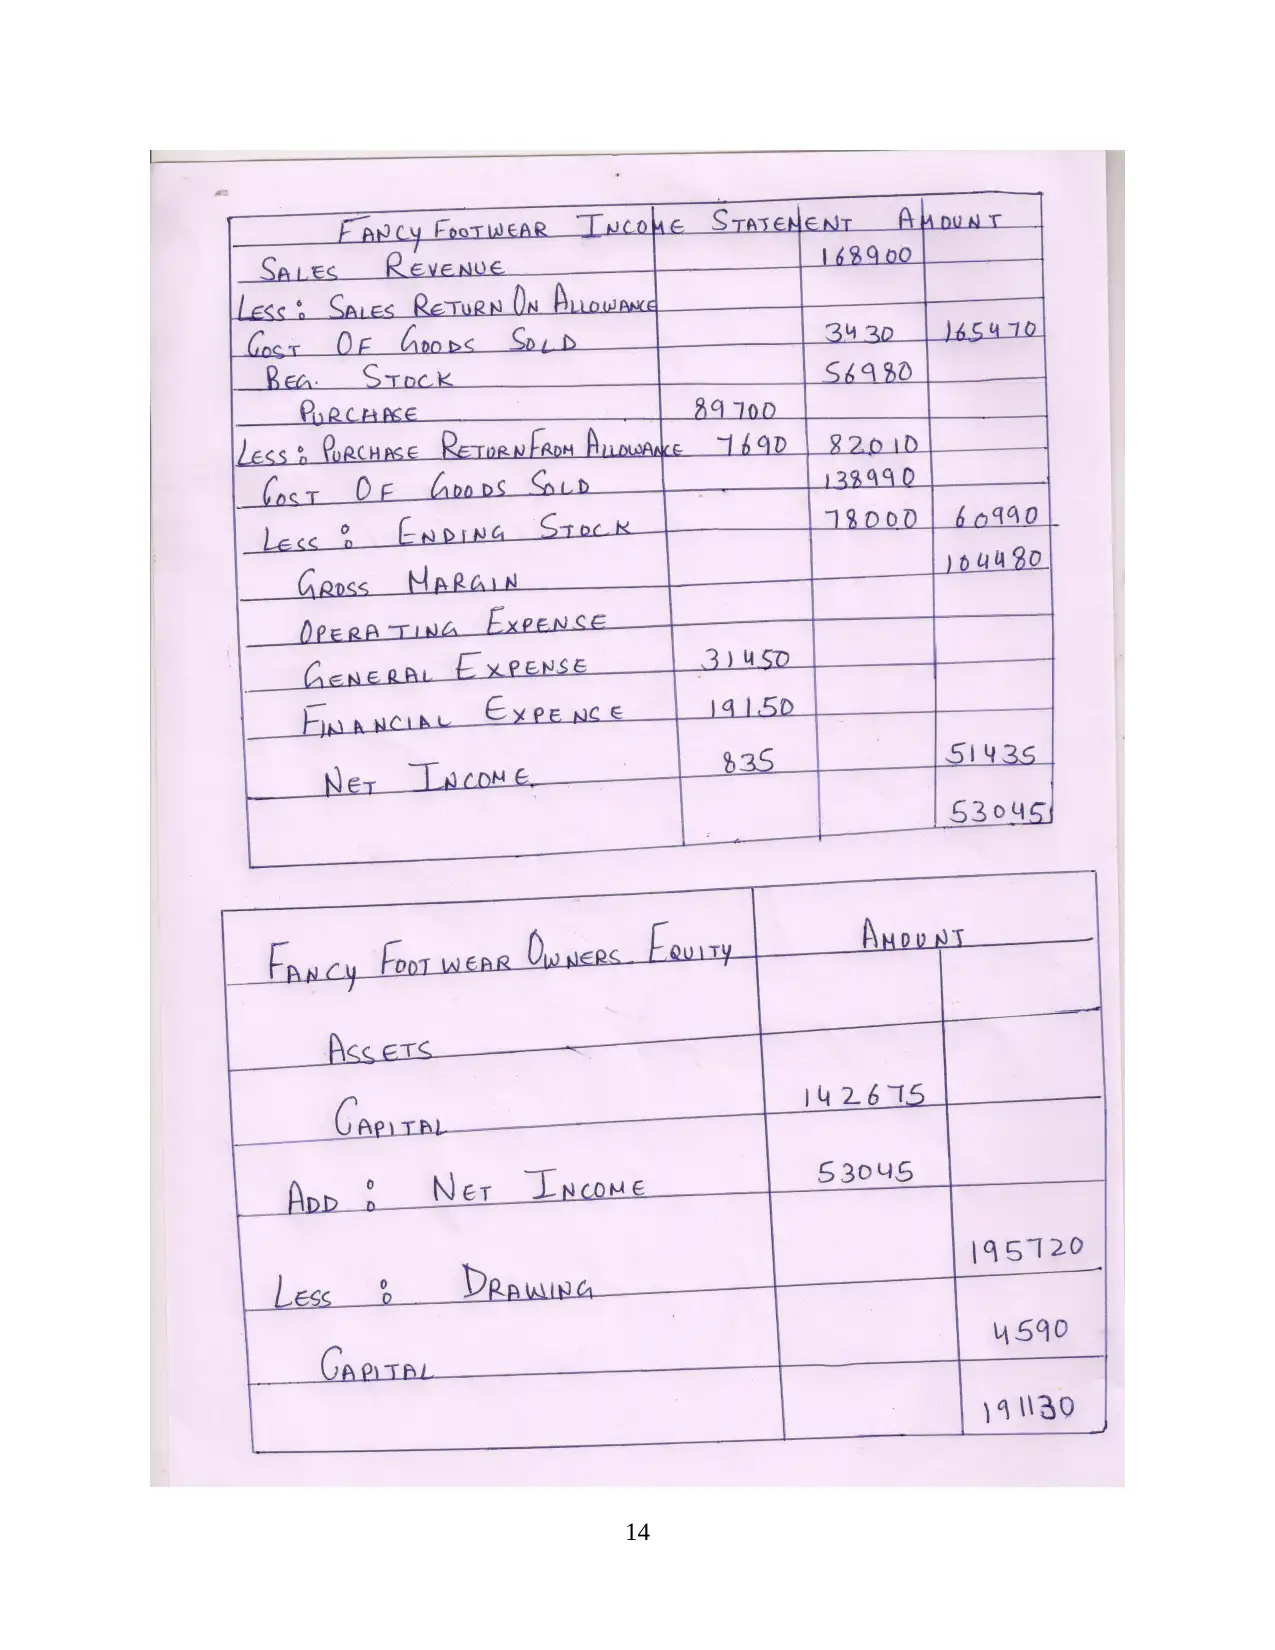 FANCY FOOTWEAR INCOME STATEMENT AMOUNT
SALES REVENUE 168900
LESS: SALES RETURN ON ALLOWANCE
COST OF GOODS SOLD 3430 165470
BEG. STOCK 56980
PURCHASE 89700
LESS: PURCHASE RETURN FROM ALLOWANCE 7690 82010
COST OF GOODS SOLD 138990
LESS: ENDING STOCK 78000 60990
GROSS MARGIN 104480
OPERATING EXPENSE
GENERAL EXPENSE 31450
FINANCIAL EXPENCE 19150
NET INCOME. 835 51435
53045
FANCY FOOTWEAR OWNERS EQUITY AMOUNT
ASSETS
CAPITAL 142675
ADD: NET INCOME 53045
195720
LESS: DRAWING
4590
CAPITAL
191130
14